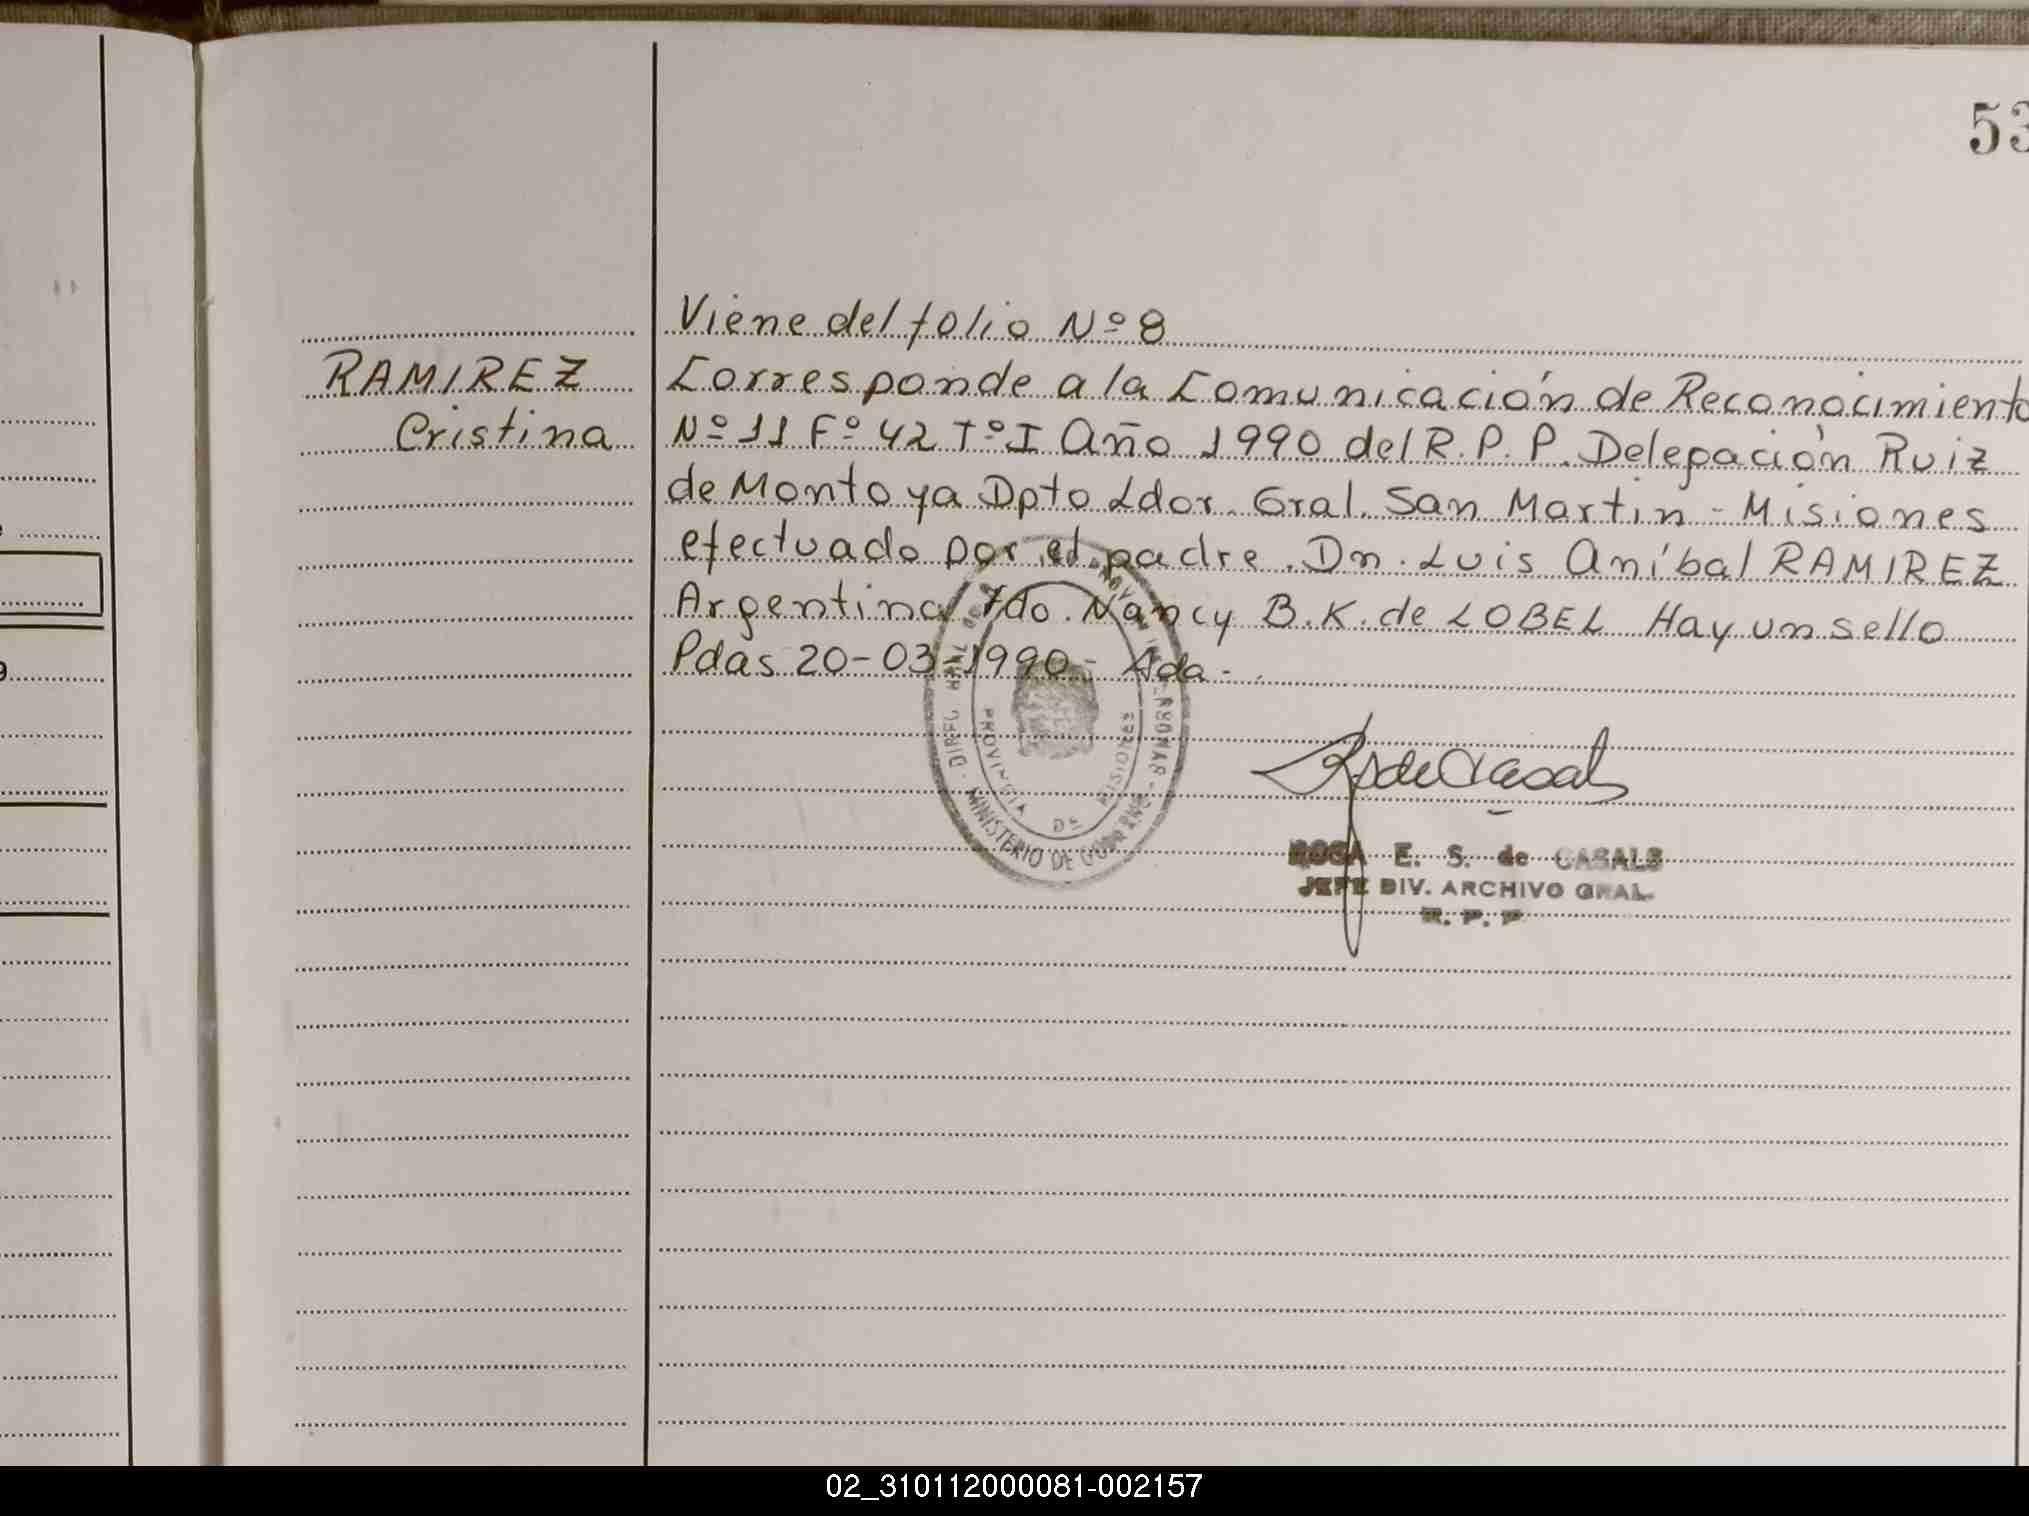 53
Viene del folio Nº 8
RAMIREZ
Cristina
Corresponde a la Comunicación de Reconocimiento
Nº 11 Fº 42 Tº I Año 1990 del R.P.P. Delegación Ruiz
de Montoya Dpto Ldor. Gral. San Martin - Misiones
efectuado por el padre. Dn. Luis Aníbal RAMIREZ
Argentina Fdo. Nancy B.K. de LOBEL Hay un sello
Pdas 20-03-1990-
MINISTERIO DE GOBIERNO
PROVINCIA DE MISIONES
ROSA E. S. de CASALS
JEFE DIV. ARCHIVO GRAL.
R. P. P
02_310112000081-002157